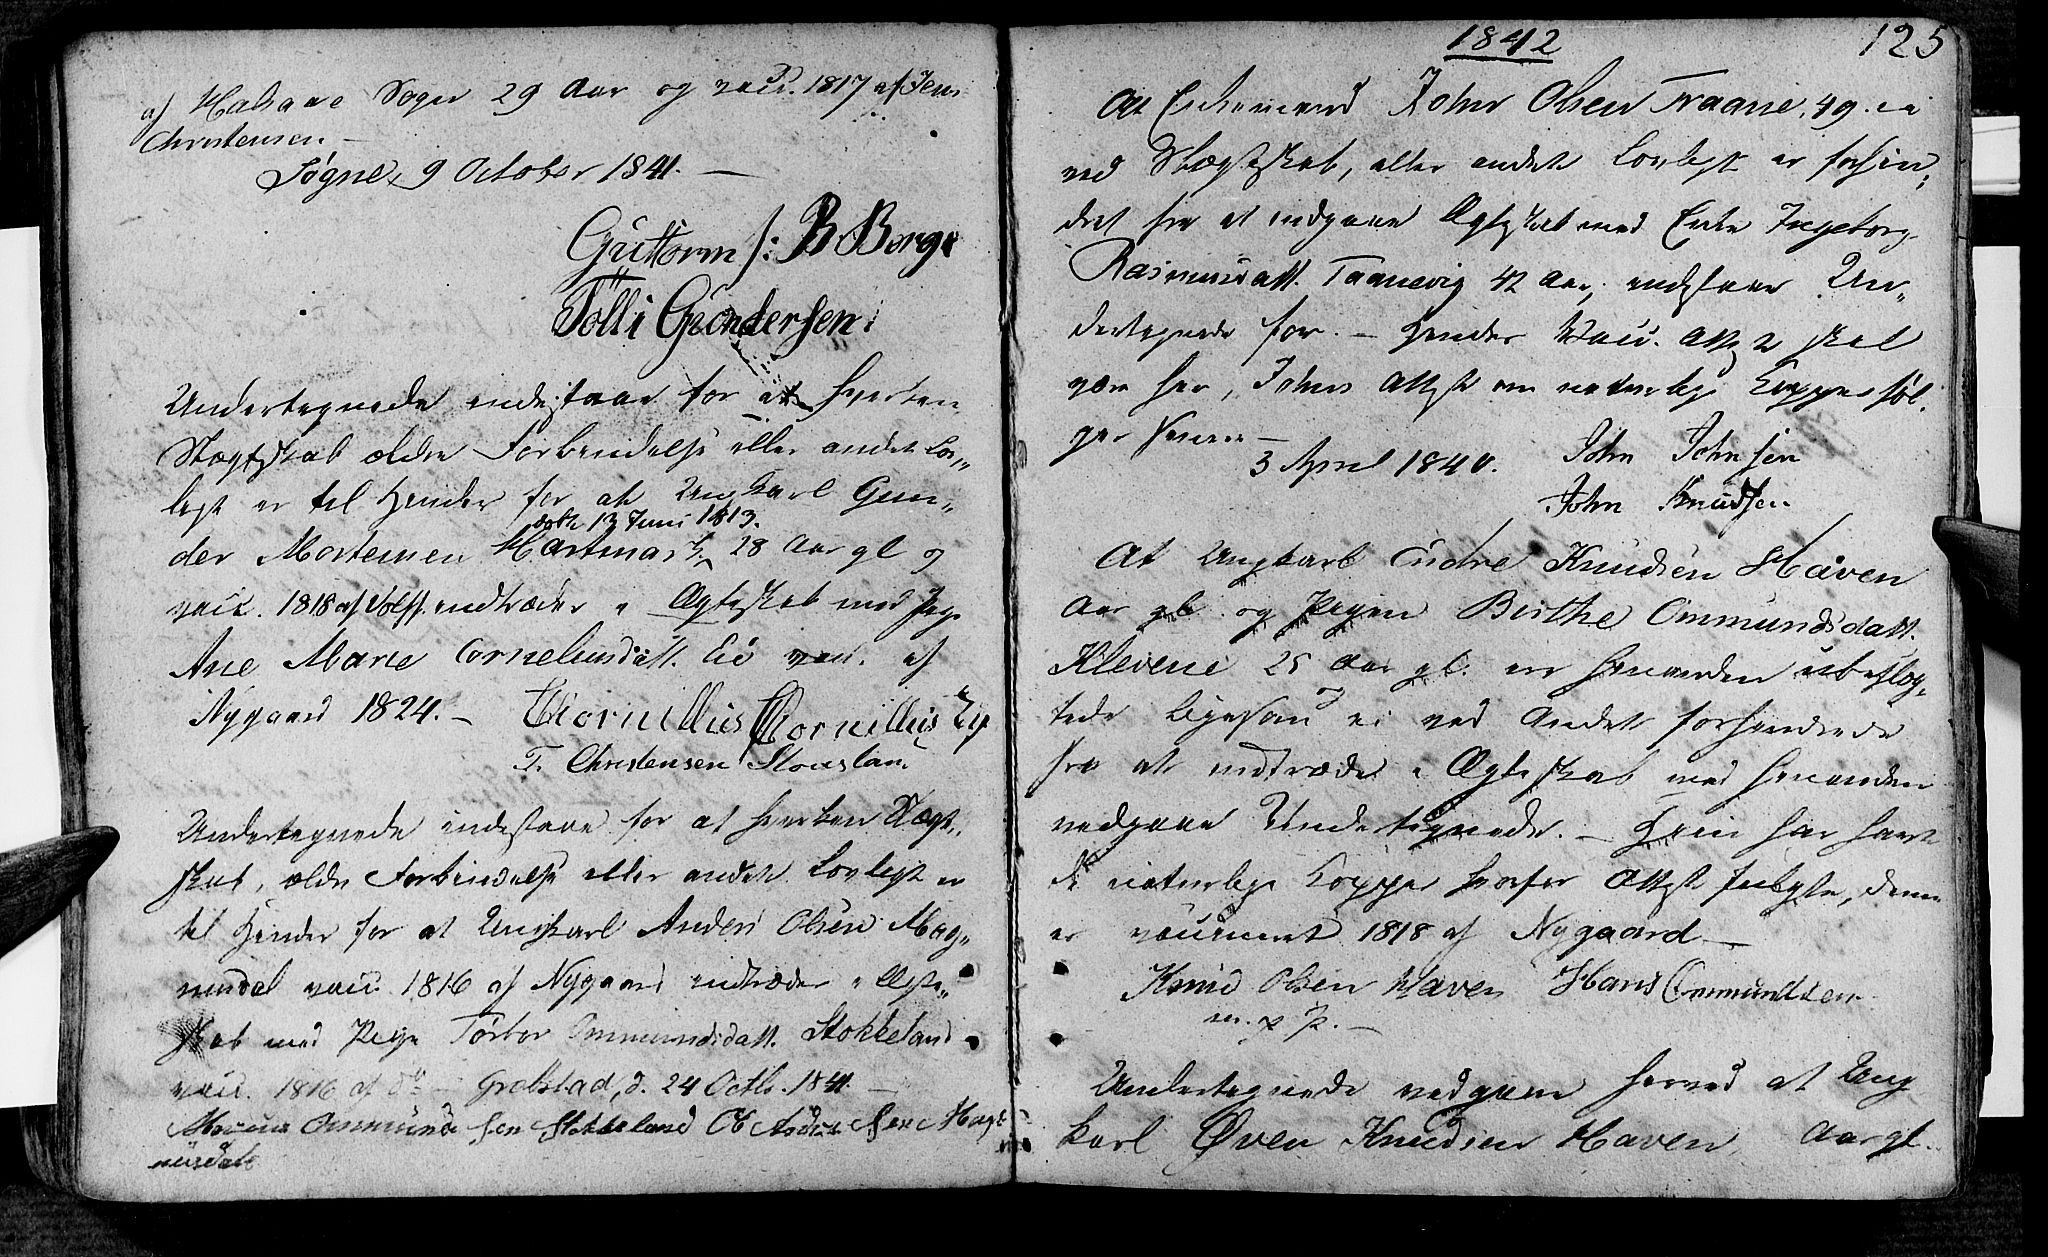 af Halsaae Sogn 29 Aar og vacc. 1817 af Jens
Christensen —
Søgne, 9 October 1841. —
Guttorm /: B. Berge
Tölli Gundersen.
Undertegnede indestaae for at hverken
Slægtskab ældre Forbindelse eller andet Lov„
ligt er til Hinder for at Ungkarl Gun„
født 13 Juni 1813.
der Mortensen Hartmark, 28 Aar gl og
vacc. 1818 af Wolff. indtræder i Ægteskab med Pige
Ane Marie Corneliusdatt. Eie vacc. af
Nygaard 1824. — Chornillius Chornillius
T. Christensen Stousland
Undertegnede indestaae for at hverken Slægt„
skab, ældre Forbindelse eller andet Lovligt er
til Hinder for at Ungkarl Anders Olsen Mag„
nusdal vacc. 1816 af Nygaard indtræder i Ægte„
skab med Pige Torbor Ommundsdatt. Stokkeland
vacc. 1816 af do — Grobstad, d. 24 Octb. 1841. —
Ommunds sen Stokkeland
nusdal
1842
125
At Enkemand John Olsen Traane, 49. ei
ved Slægtskab, eller andet Lovligt er forhin„
dret fra at indgaae Ægteskab med Enke Ingeborg
Rasmusdatt. Taanevig 42 Aar, indestaae Un„
dertegnede for. — Hendes Vacc. Attest skal
være her, Johns Attest om naturlige Kopper føl„
ger senere —
3 April 1840. John Johnsen
John Knudsen
At Ungkarl Endre Knudsen Haaven
Aar gl. og Pigen Birthe Ommundsdatt.
Klevene 25 Aar gl. ere hinanden ubeslæg„
tede ligesaa ei ved Andet forhindrede
fra at indtræde i Ægteskab med hinanden
vedgaae Undertegnede. — Han har havt
de naturlige Kopper hvorfor Attest følger, denne
er vaccineret 1818 af Nygaard —
Knud Olsen Haven Hans Ommundsen
m. p. P. —
Undertegnede vedgaae herved at Ung
karl Øven Knudsen Haven, Aar gl.